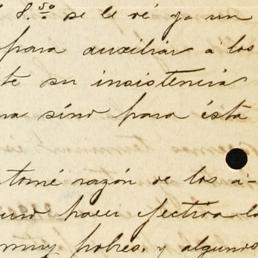 8.50 se le vé ya un
para auxiliar a los
te su insistencia
na sinó para ésta
tomé razón de los a-
hacer efectiva la
muy pobres, y algunos